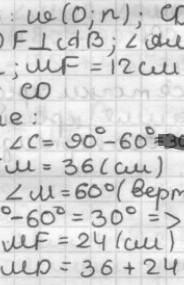 : w(O; r), CD
DF⊥cdB; ∠
; MF = 12см
CD
е:
∠C = 90°-60°=30
M = 36(см)
∠M = 60°(верт
°-60° = 30° =>
MF = 24(см)
MD = 36 + 24